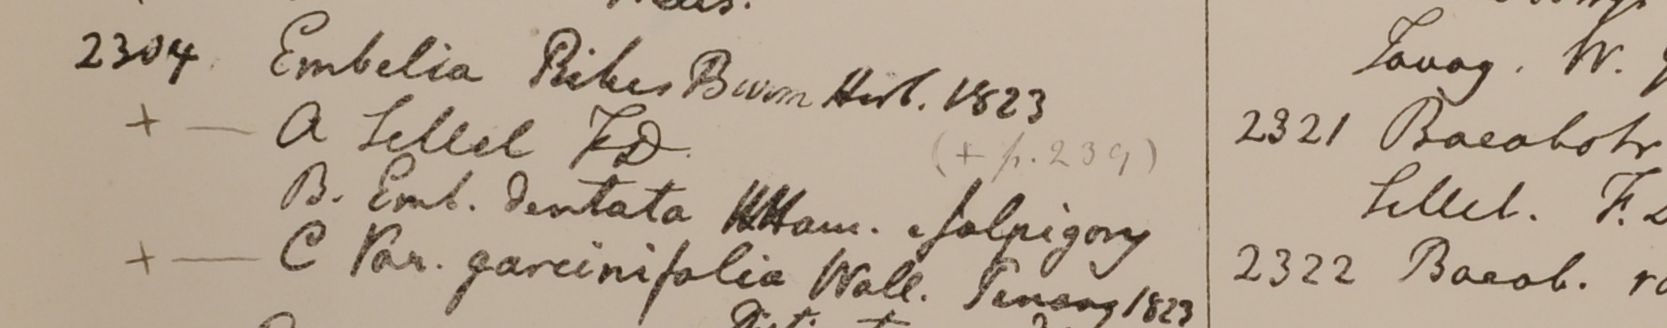 2304 Embelia Ribes Burm Herb. 1823
+ — A Sillet FD
(+ p. 239)
B. Emb. dentata HHam. e Jalpigory
+ — C Var. garcinifolia Wall. Penang 1823
Tavoy. W.
2321 Baeobotr
Sillet. F.D
2322 Baeob. ro